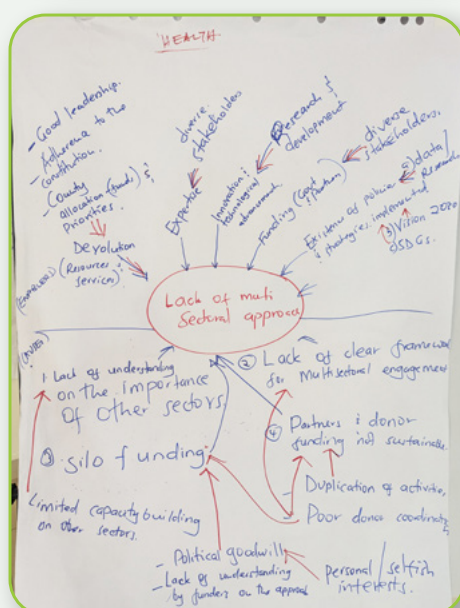 HEALTH
- Good leadership.
- Adherence to the
constitution.
- County
allocation (funds) &
Priorities.
Devolution
(Resources &
services)
(ENABLERS)
diverse
stakeholders
Expertise
Innovation &
technological
advancement
Research &
development
Funding (Govt
& Partners)
diverse
stakeholders.
Existence of policies
& strategies implemented
data /
Research
Vision 2030
SDGs.
Lack of multi
Sectoral approach
1. Lack of understanding
on the importance
of other sectors
② Lack of clear framework
for multisectoral engagement
③ Silo funding
④ Partners & donor
funding not sustainable
Limited capacity building
on other sectors.
- Duplication of activities
- Poor donor coordination
- Political goodwill
- Lack of understanding
by funders on the approach
personal / selfish
interests.